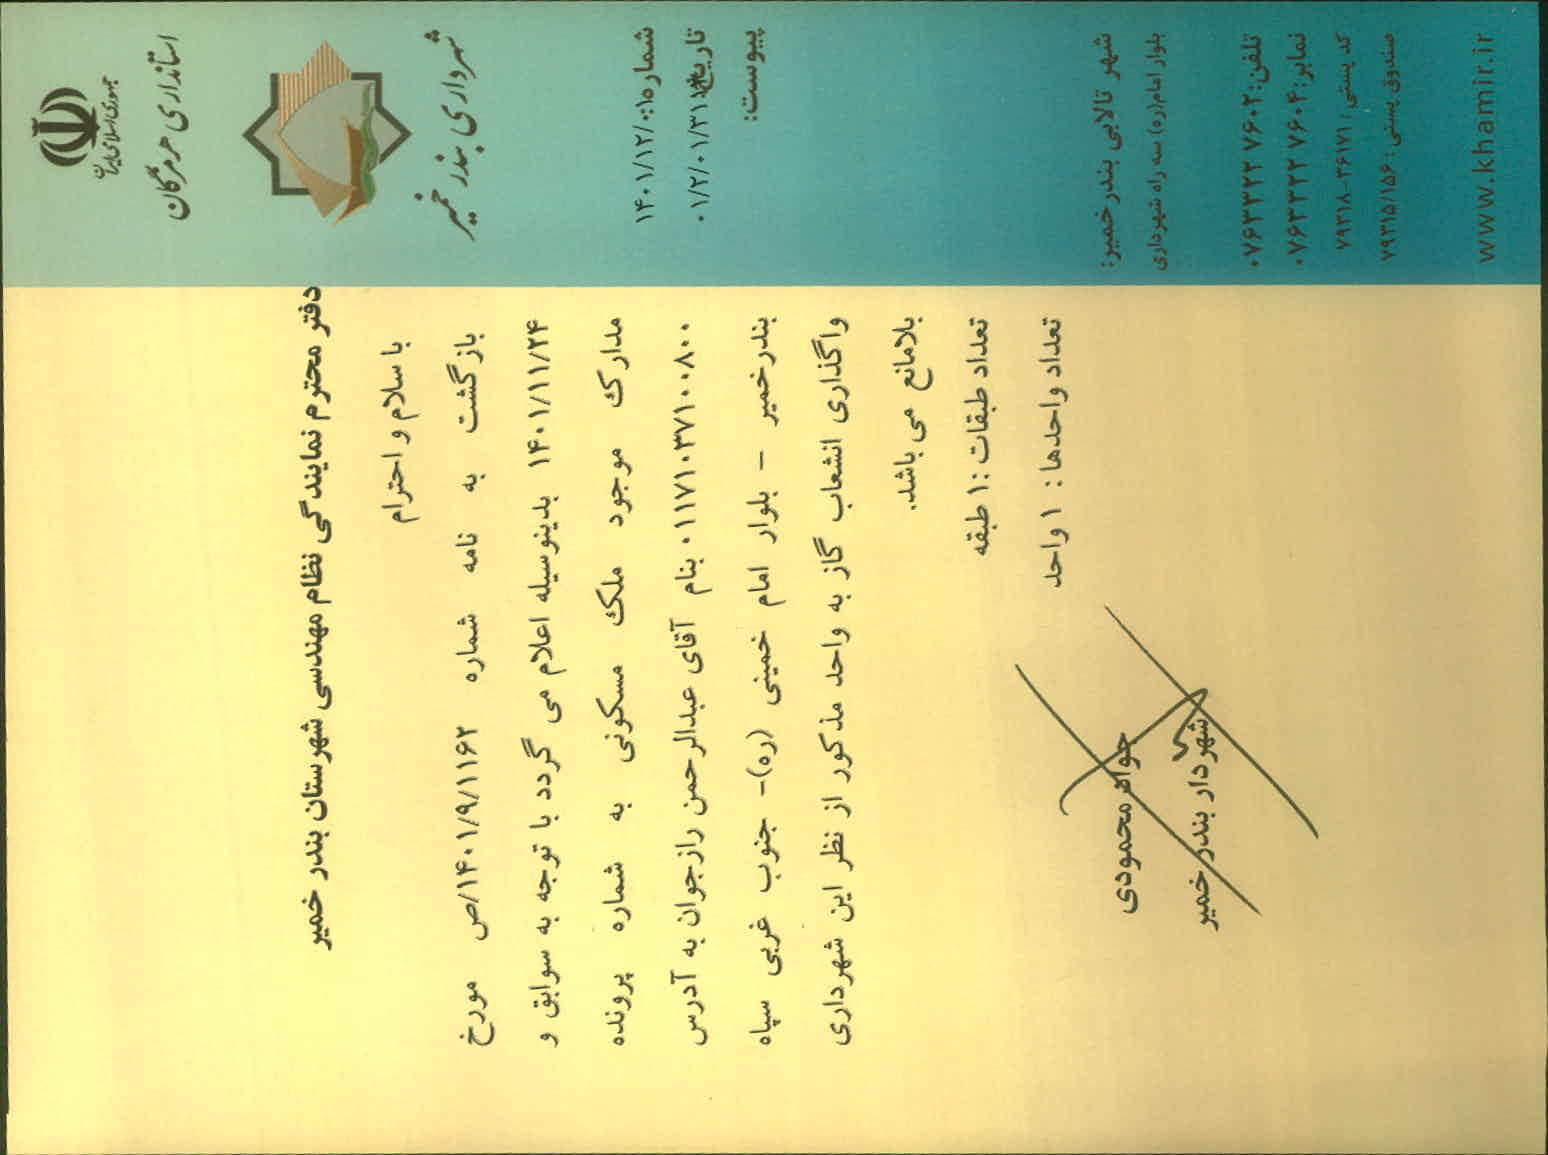 جمهوری اسلامی ایران
استانداری هرمزگان
شهرداری بندر خمیر
شماره:
۱۴۰۱/۱۲/۰۱۵
تاریخ:
۰۱/۲/۰۱/۳۱
پیوست:
دفتر محترم نمایندگی نظام مهندسی شهرستان بندر خمیر
با سلام و احترام
بازگشت به نامه شماره ۱۴۰۱/۹/۱۱۶۲/ص مورخ
۱۴۰۱/۱۱/۲۴ بدینوسیله اعلام می گردد با توجه به سوابق و
مدارک موجود ملک مسکونی به شماره پرونده
۰۱۱۷۱۰۳۷۱۰۰۸۰۰ بنام آقای عبدالرحمن رازجوان به آدرس
بندرخمیر – بلوار امام خمینی (ره)- جنوب غربی سپاه
واگذاری انشعاب گاز به واحد مذکور از نظر این شهرداری
بلامانع می باشد.
تعداد طبقات :۱ طبقه
تعداد واحدها : ۱ واحد
محمودی
شهردار بندر خمیر
شهر تالابی بندر خمیر:
بلوار امام(ره) سه راه شهرداری
تلفن: ۰۷۶۳۳۲۲۷۶۰۲
نمابر: ۰۷۶۳۳۲۲۷۶۰۴
کد پستی: ۷۹۳۱۸-۳۶۱۷۱
صندوق پستی: ۷۹۳۱۵/۱۵۶
www.khamir.ir